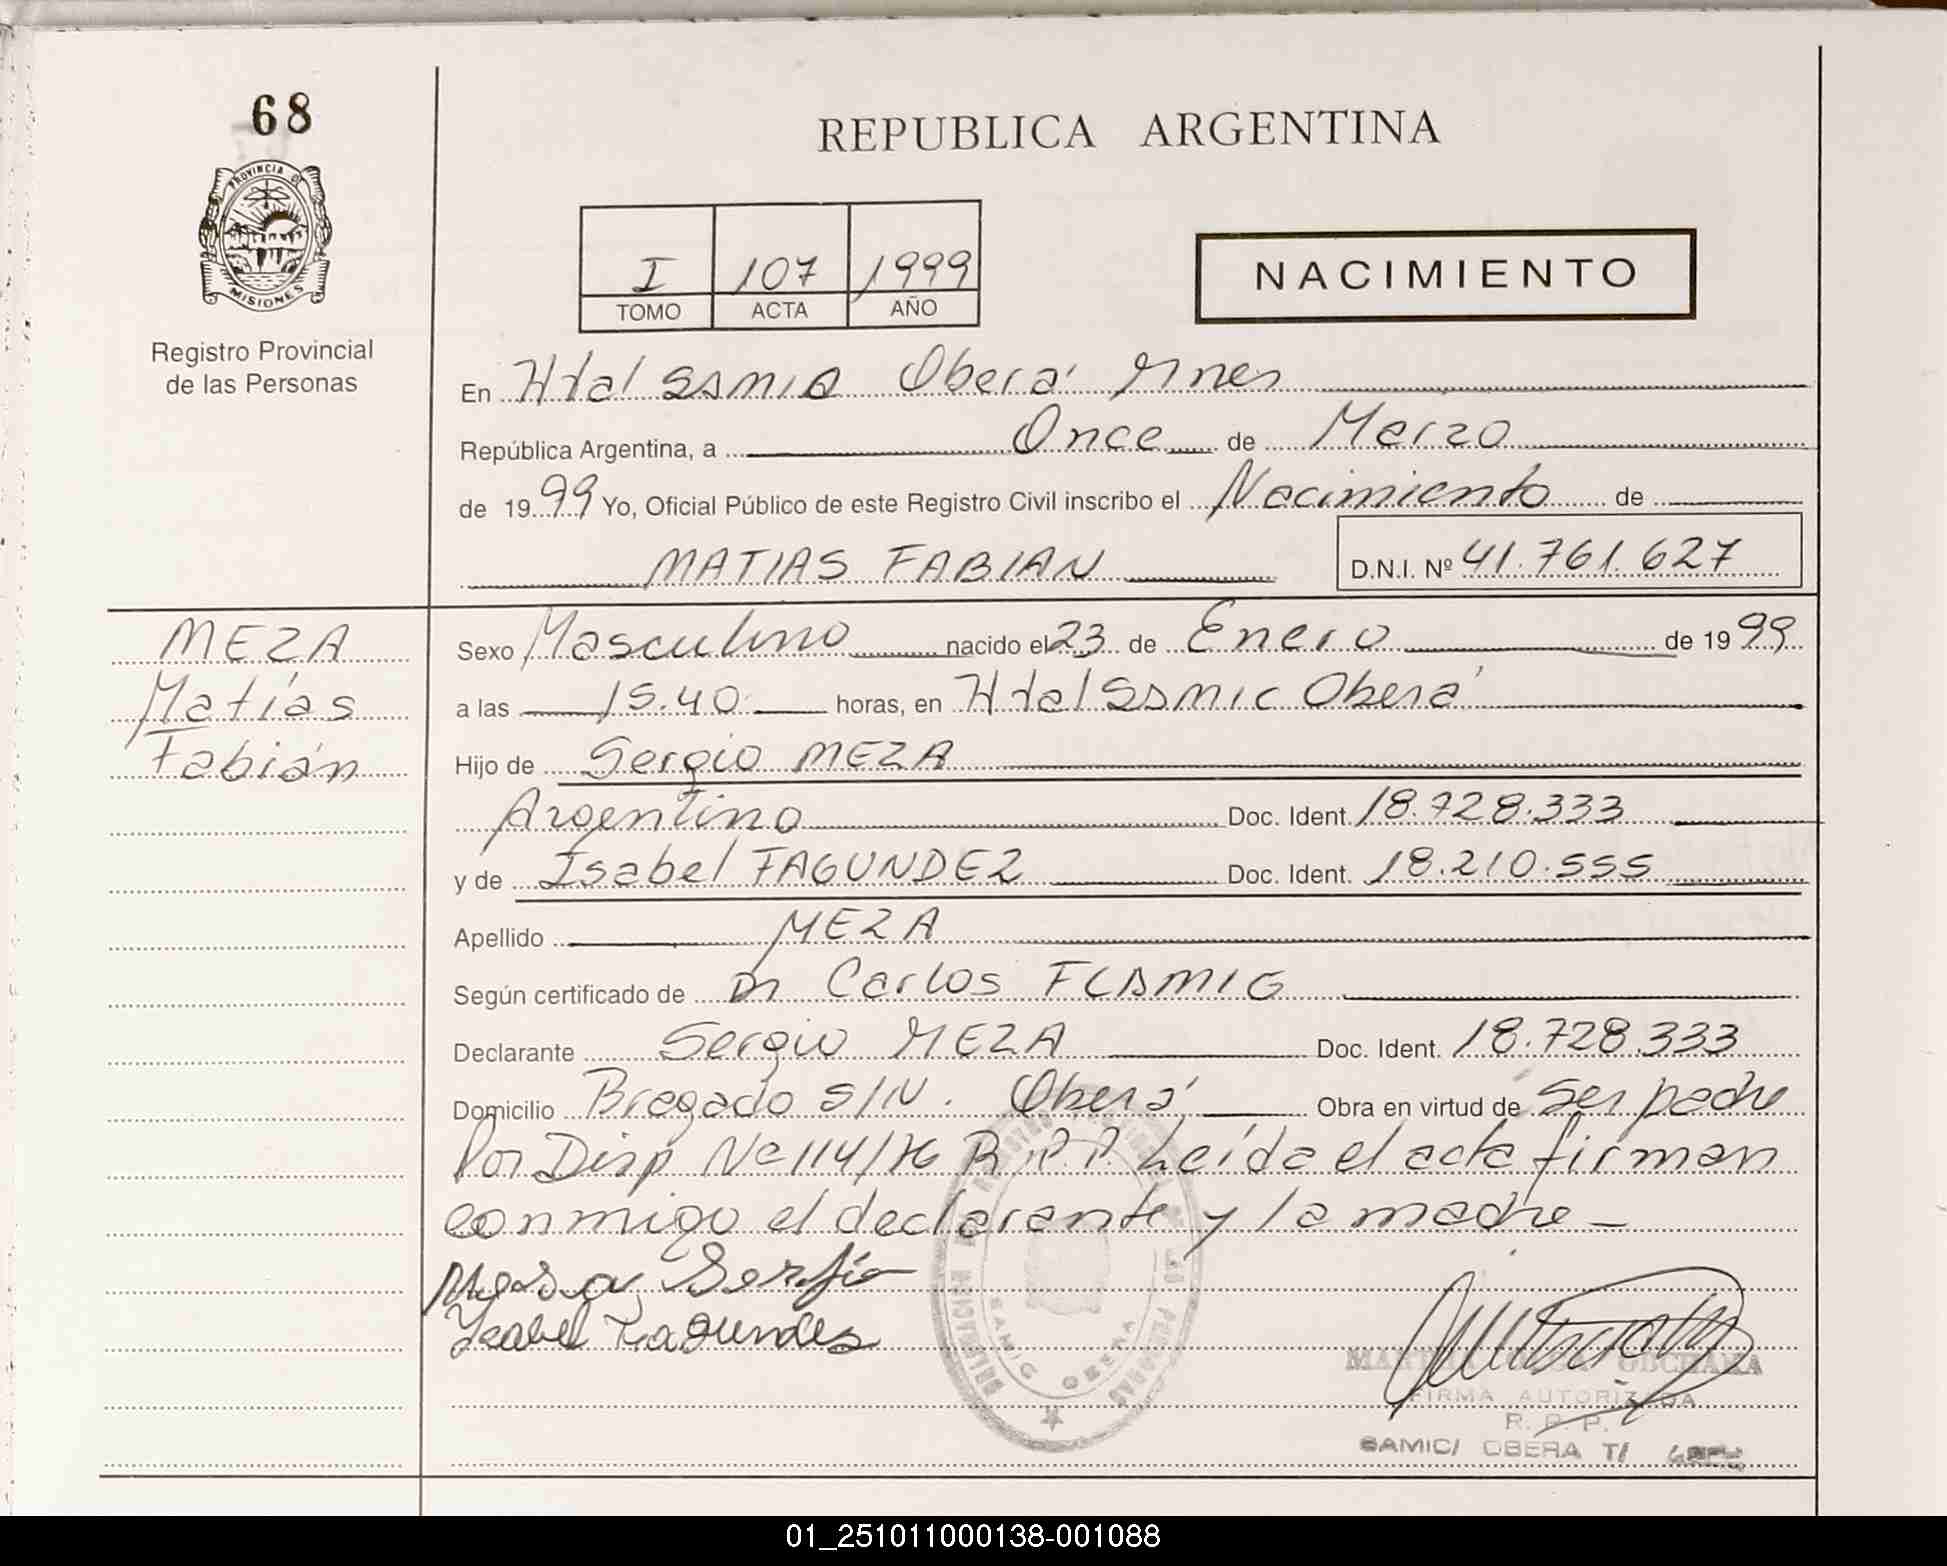 68
PROVINCIA DE
MISIONES
Registro Provincial
de las Personas
REPUBLICA ARGENTINA
I 107 1999
TOMO ACTA AÑO
NACIMIENTO
En Htal SSMIC Oberá Mnes
República Argentina, a Once de Marzo
de 1999 Yo, Oficial Público de este Registro Civil inscribo el Nacimiento de
MATIAS FABIAN D.N.I. Nº 41.761.627
MEZA
Matías
Fabián
Sexo Masculino nacido el 23 de Enero de 1999
a las 15.40 horas, en Htal SSMIC Oberá
Hijo de Sergio MEZA
Argentino Doc. Ident. 18.728.333
y de Isabel FAGUNDEZ Doc. Ident. 18.210.555
Apellido MEZA
Según certificado de Dr Carlos FLAMIG
Declarante Sergio MEZA Doc. Ident. 18.728.333
Domicilio Bragado S/N. Oberá Obra en virtud de Ser padre
Por Disp Nº 114/76 R.P.P. Leída el acta firman
conmigo el declarante y la madre
Mesa Serfio
Isabel Fagundes
SAMIC OBERA
FIRMA AUTORIZADA
R. P. P.
SAMIC/ OBERA T/
01_251011000138-001088